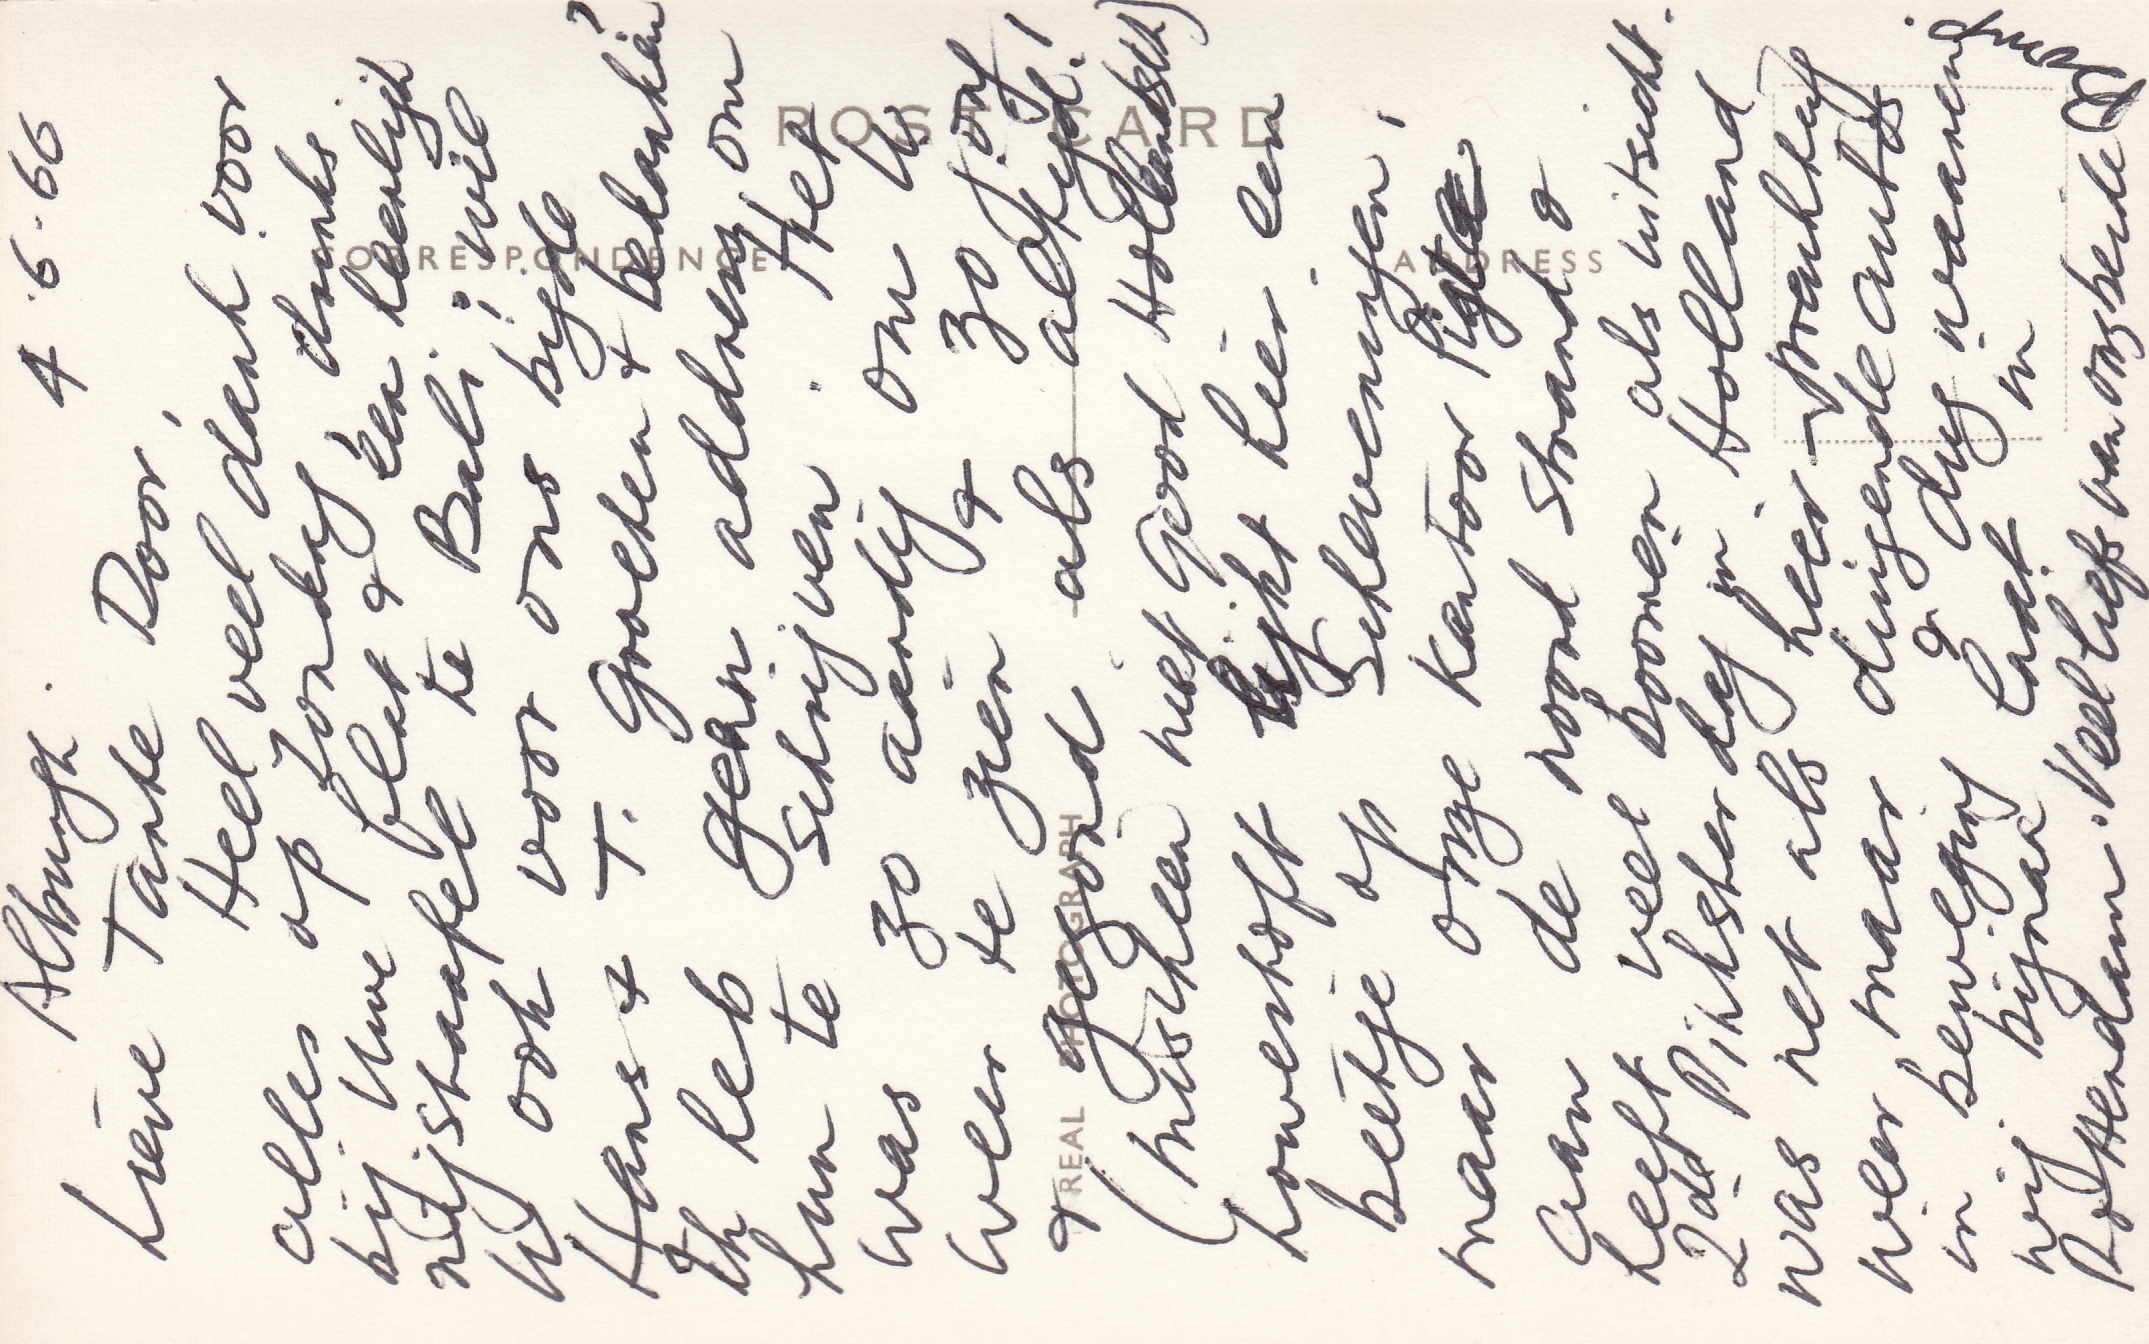 Alburgh. 4.6.66
Lieve Tante Door,
Heel veel dank voor
alles op Zondag drinks
bij Uwe flat & een heerlijk
rijstaafel te Bali; wil
U ook voor ons byde
Hans & T. Groeten & bedanken?
Ik heb geen address om
hun te schrijven. Het
was zo aardig om Us
weer te zien & zo jong
& gezond als altyd!
(misschien niet goed Hollandsch)
Lowestoft lijkt hier een
beetje op Scheveningen,
maar onze kantoor ligt
aan de noord strand &
heeft veel boomen als uitsicht.
2de Pinksterdag in Holland
was net als hier - prachtig
weer maar duizende autos
in beweging & dus waren
wij bijna laat in
Rotterdam. Veel liefs van ons beide
POST CARD
CORRESPONDENCE
ADDRESS
REAL PHOTOGRAPH